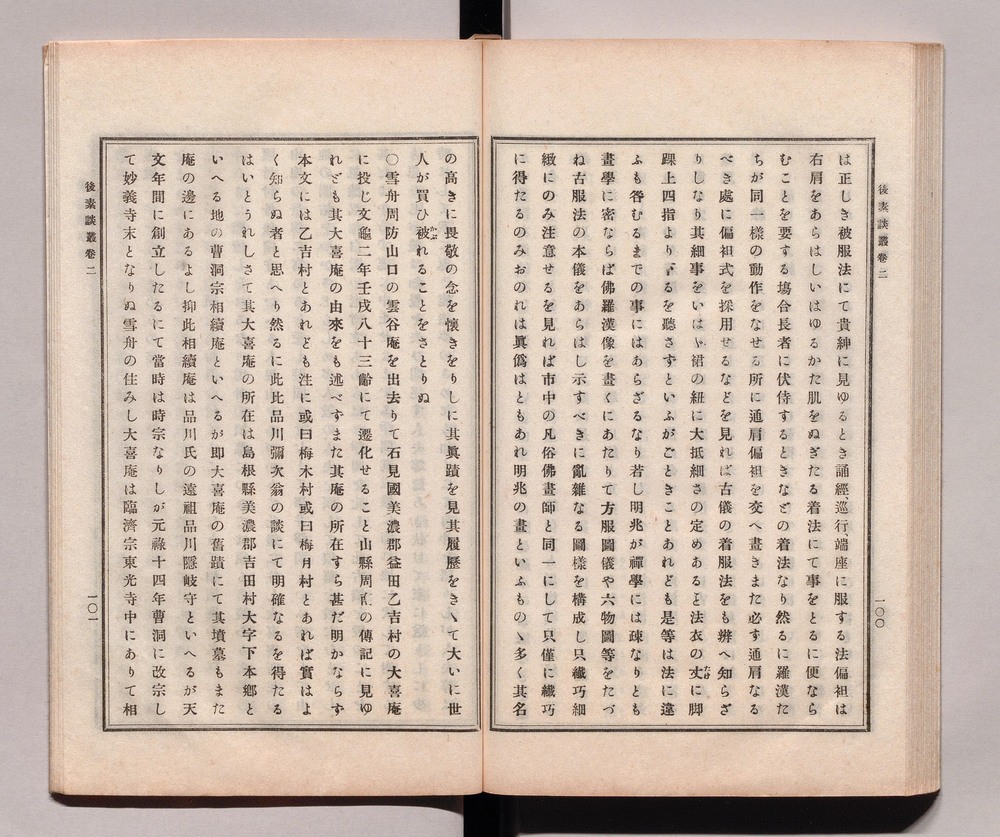 後素談叢卷二
一〇〇
は正しき被服法にて貴紳に見ゆるとき誦經、巡行、端座に服する法偏袒は
右肩をあらはしいはゆるかた肌をぬぎたる着法にて事をとるに便なら
むことを要する塲合長者に伏侍するときなどの着法なり然るに羅漢た
ちが同一樣の動作をなせる所に通肩偏袒を交へ畫きまた必す通肩なる
べき處に偏袒式を採用せるなどを見れば古儀の着服法をも辨へ知らざ
りしなり其細事をいはゞ裙の紐に大抵細さの定めあると法衣の丈に脚
踝上四指より下るを聽さずといふがごときことあれども是等は法に違
ふも咎むるまでの事にはあらざるなり若し明兆が禪學には疎なりとも
畫學に密ならば佛羅漢像を畫くにあたりて方服圖儀や六物圖等をたづ
ね古服法の本儀をあらはし示すべきに亂雜なる圖樣を構成し只纎巧細
緻にのみ注意せるを見れば市中の凡俗佛畫師と同一にして只僅に纎巧
に得たるのみおのれは眞僞はともあれ明兆の畫といふものゝ多く其名
の高きに畏敬の念を懷きをりしに其眞蹟を見其履歷をきゝて大いに世
人が買ひ被れることをさとりぬ
〇雪舟周防山口の雲谷庵を出去りて石見國美濃郡益田乙吉村の大喜庵
に投じ文龜二年壬戌八十三齡にて遷化せること山縣周南の傳記に見ゆ
れども其大喜庵の由來をも述べずまた其庵の所在すら甚だ明かならず
本文には乙吉村とあれども注に或曰梅木村或曰梅月村とあれば實はよ
く知らぬ者と思へり然るに此比品川彌次翁の談にて明確なるを得たる
はいとうれしさて其大喜庵の所在は島根縣美濃郡吉田村大字下本鄕と
いへる地の曹洞宗相續庵といへるが即大喜庵の舊蹟にて其墳墓もまた
庵の邊にあるよし抑此相續庵は品川氏の遠祖品川隱岐守といへるが天
文年間に創立したるにて當時は時宗なりしが元祿十四年曹洞に改宗し
て妙義寺末となりぬ雪舟の住みし大喜庵は臨濟宗東光寺中にありて相
後素談叢卷二
一〇一